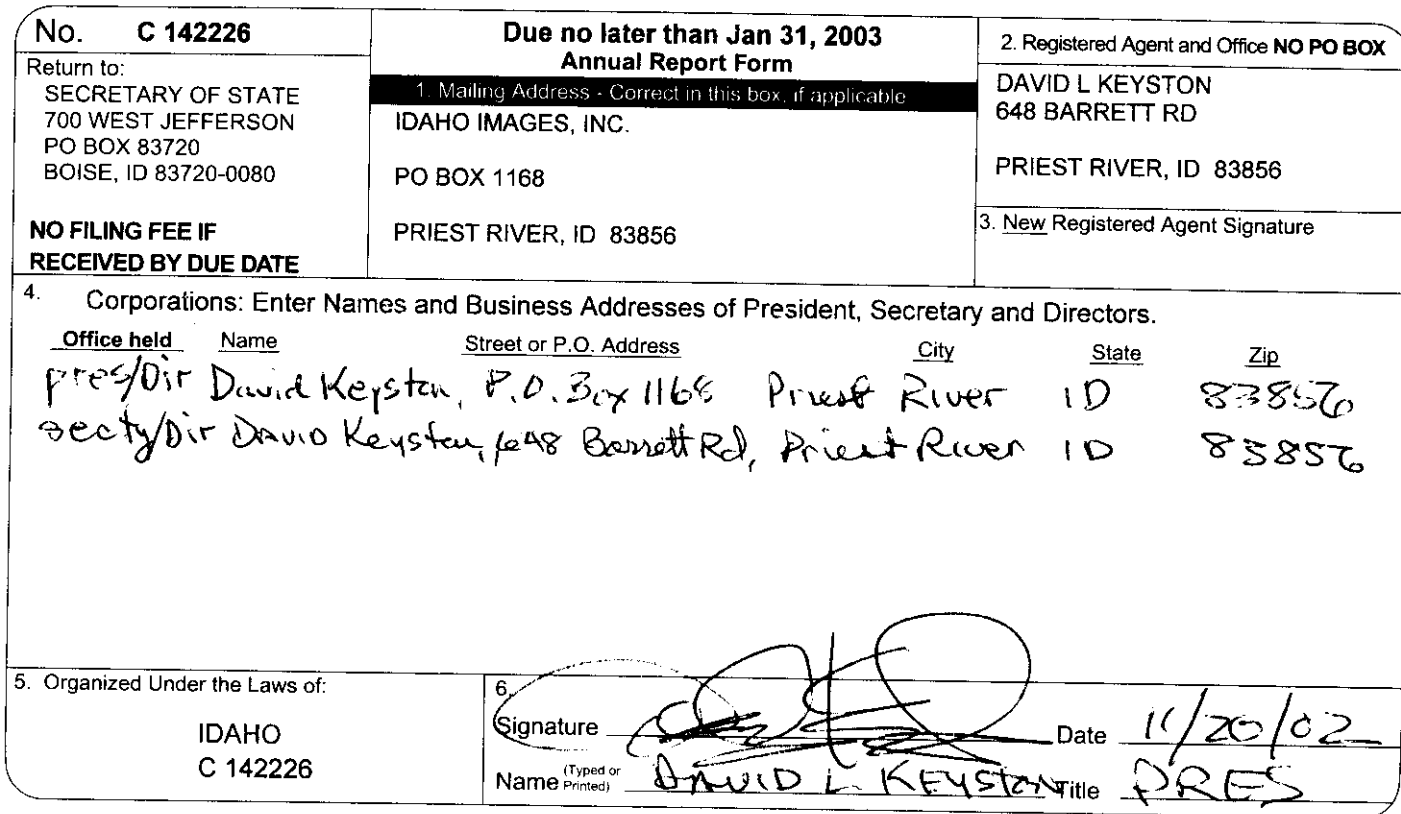 No. C 142226
Return to:
SECRETARY OF STATE
700 WEST JEFFERSON
PO BOX 83720
BOISE, ID 83720-0080
NO FILING FEE IF
RECEIVED BY DUE DATE
Due no later than Jan 31, 2003
Annual Report Form
1. Mailing Address - Correct in this box, if applicable
IDAHO IMAGES, INC.
PO BOX 1168
PRIEST RIVER, ID 83856
2. Registered Agent and Office NO PO BOX
DAVID L KEYSTON
648 BARRETT RD
PRIEST RIVER, ID 83856
3. New Registered Agent Signature
4. Corporations: Enter Names and Business Addresses of President, Secretary and Directors.
Office held Name Street or P.O. Address City State Zip
pres/Dir David Keyston, P.O. Box 1168 Priest River ID 83856
secty/Dir David Keyston, 648 Barrett Rd, Priest River ID 83856
5. Organized Under the Laws of:
IDAHO
C 142226
6.
Signature Date 11/20/02
Name (Typed or Printed) DAVID L. KEYSTON Title PRES